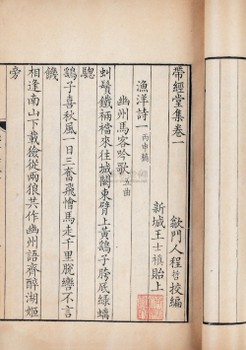 帶經堂集卷一
歙門人程哲校編
漁洋詩一 丙申稿
新城王士禛貽上
幽州馬客吟歌五曲
虯鬚鐵裲襠來往城闕東臂上黃鷂子胯底綠螭
驄
鷂子喜秋風一日三奮飛憎馬走千里脫轡不言
饑
相逢南山下載獫從兩狼共作幽州語齊醉湖姬
旁